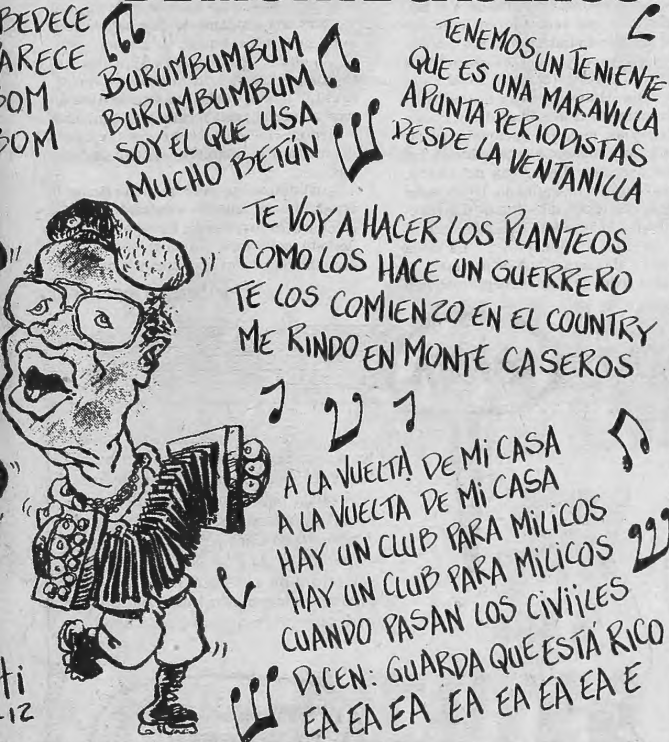 BEDECE
ARECE
BOM
BOM
BURUMBUMBUM
BURUMBUMBUM
SOY EL QUE USA
MUCHO BETÚN
TENEMOS UN TENIENTE
QUE ES UNA MARAVILLA
APUNTA PERIODISTAS
DESDE LA VENTANILLA
TE VOY A HACER LOS PLANTEOS
COMO LOS HACE UN GUERRERO
TE LOS COMIENZO EN EL COUNTRY
ME RINDO EN MONTE CASEROS
A LA VUELTA DE MI CASA
A LA VUELTA DE MI CASA
HAY UN CLUB PARA MILICOS
HAY UN CLUB PARA MILICOS
CUANDO PASAN LOS CIVIILES
DICEN: GUARDA QUE ESTÁ RICO
EA EA EA EA EA EA EA E
ti
-12